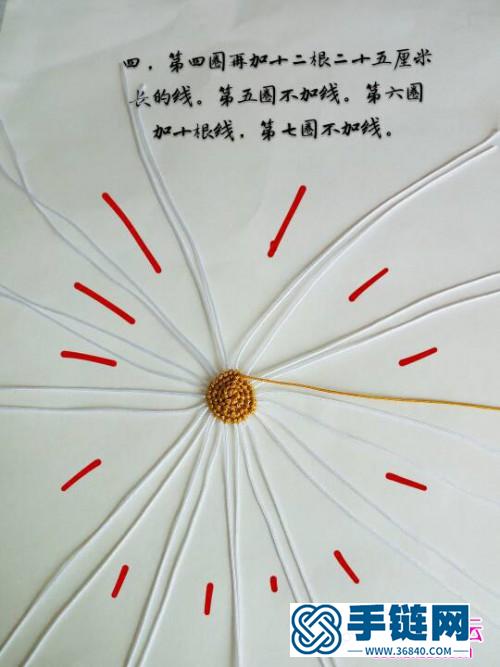 四，第四圈再加十二根二十五厘米
长的线。第五圈不加线。第六圈
加十根线，第七圈不加线。
手链网
www.36840.com
云